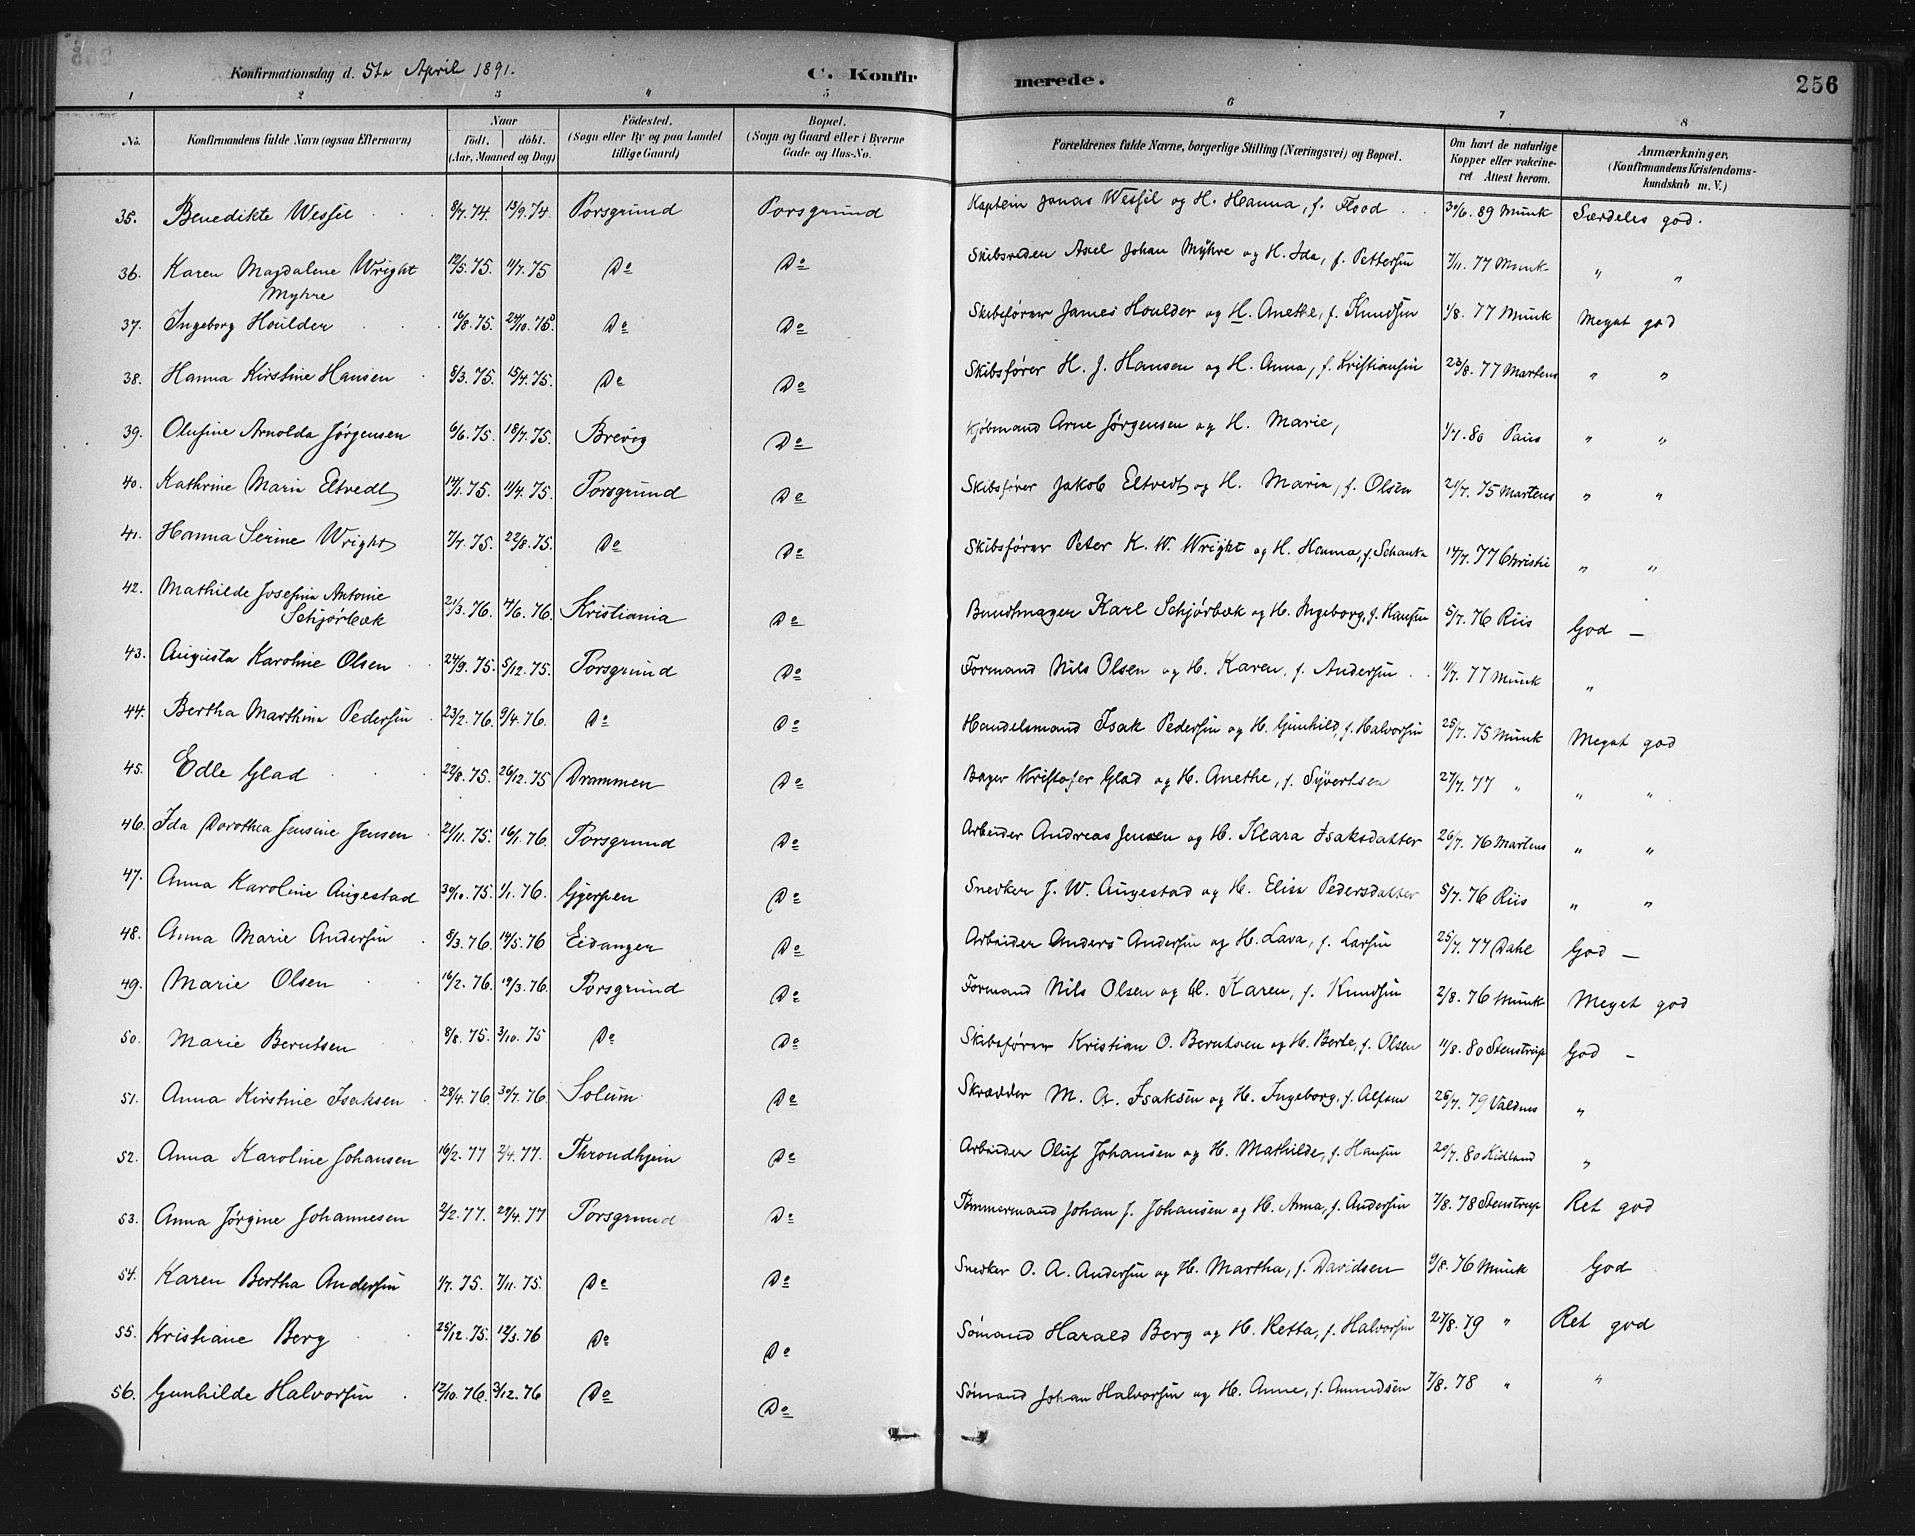 Konfirmationsdag d. 5te April 1891. C. Konfirmerede. 256
1 2 3 4 5 6 7 8
No. Konfirmandens fulde Navn (ogsaa Efternavn) Naar født. døbt. (Aar, Maaned og Dag) Fødested. (Sogn eller By og paa Landet tillige Gaard) Bopæl. (Sogn og Gaard eller i Byerne Gade og Hus-No. Forældrenes fulde Navne, borgerlige Stilling (Næringsvei) og Bopæl. Om havt de naturlige Kopper eller vakcineret Attest herom. Anmærkninger. (Konfirmandens Kristendomskundskab m. V.)
35. Benedikte Wessel 8/7.74 13/9.74 Porsgrund Porsgrund Kaptein Jonas Wessel og H. Hanna, f. Flood 30/6.89 Munk Særdeles god.
36. Karen Magdalene Wright Myhre 12/5.75. 11/7.75 Do Do Skibsreder Axel Johan Myhre og H. Ida, f. Pettersen 7/11.77 Munk " "
37. Ingeborg Houlder 16/8.75. 24/10.75 Do Do Skibsfører James Houlder og H. Anethe, f. Knudsen 1/8.77 Munk Meget god
38. Hanna Kirstine Hansen 8/3.75. 15/4.75. Do Do Skibsfører H. J. Hansen og H. Anna, f. Kristiansen 23/8.77 Martens " "
39. Olufine Arnolda Jørgensen 6/6.75. 18/7.75. Brevig Do Kjøbmand Arne Jørgensen og H. Marie, 1/7.80 Paus " "
40. Kathrine Maria Eltvedt 14/1.75. 11/4.75. Porsgrund Do Skibsfører Jakob Eltvedt og H. Maria, f. Olsen 21/7.75 Martens " "
41. Hanna Serine Wright 7/7.75. 22/8.75. Do Do Skibsfører Peter K. W. Wright og H. Hanna, f. Schanke 14/7.77 Christie " "
42. Mathilde Josefine Antonie Schjørbæk 21/3.76. 4/6.76. Kristiania Do Bundtmager Karl Schjørbæk og H. Ingeborg, f. Hansen 5/7.76 Riis God —
43. Augusta Karoline Olsen 24/9.75. 5/12.75. Porsgrund Do Formand Nils Olsen og H. Karen, f. Andersen 11/7.77 Munk "
44. Bertha Marthina Pedersen 23/2.76. 9/4.76. Do Do Handelsmand Isak Pedersen og H. Gunhild, f. Halvorsen 25/7.75 Munk Meget god
45. Edle Glad 22/8.75. 26/12.75 Drammen Do Bager Kristofer Glad og H. Anethe, f. Syvertsen 27/7.77 " " "
46. Ida Dorothea Jensine Jensen 21/11.75. 16/1.76. Porsgrund Do Arbeider Andreas Jensen og H. Klara Isaksdatter 26/7.76 Martens " "
47. Anna Karoline Augestad 30/10.75. 1/1.76. Gjerpen Do Snedker J. W. Augestad og H. Elisa Pedersdatter 5/7.76 Riis " "
48. Anna Marie Andersen 8/3.76. 14/5.76 Eidanger Do Arbeider Anders Andersen og H. Lava, f. Larsen 25/7.77 Dahl God —
49. Marie Olsen 16/2.76. 19/3.76. Porsgrund Do Formand Nils Olsen og H. Karen, f. Knudsen 2/8.76 Munk Meget god
50. Marie Berntsen 8/8.75. 3/10.75 Do Do Skibsfører Kristian O. Berntsen og H. Berte, f. Olsen 11/8.80 Stenstrup God —
51. Anna Kirstine Isaksen 28/4.76. 30/7.76. Solum Do Skrædder M. A. Isaksen og H. Ingeborg, f. 26/7.79 Valdnes "
52. Anna Karoline Johansen 16/2.77 2/4.77. Throndhjem Do Arbeider Oluf Johansen og H. Mathilde, f. Hansen 20/7.80 Kidland "
53. Anna Jørgine Johannesen 2/2.77. 29/4.77 Porsgrund Do Tømmermand Johan J. Johansen og H. Anna, f. Andersen 7/8.78 Stenstrup Ret god
54. Karen Bertha Andersen 1/7.75. 7/11.75. Do Do Snedker O. A. Andersen og H. Martha, f. Davidsen 9/8.76 Munk God
55. Kristiane Berg 25/12.75. 12/3.76 Do Do Sømand Harald Berg og H. Retta, f. Halvorsen 27/8.79 " Ret god
56. Gunhilde Halvorsen 12/10.76. 3/12.76 Do Do Sømand Johan Halvorsen og H. Anne, f. Amundsen 7/8.78 " "